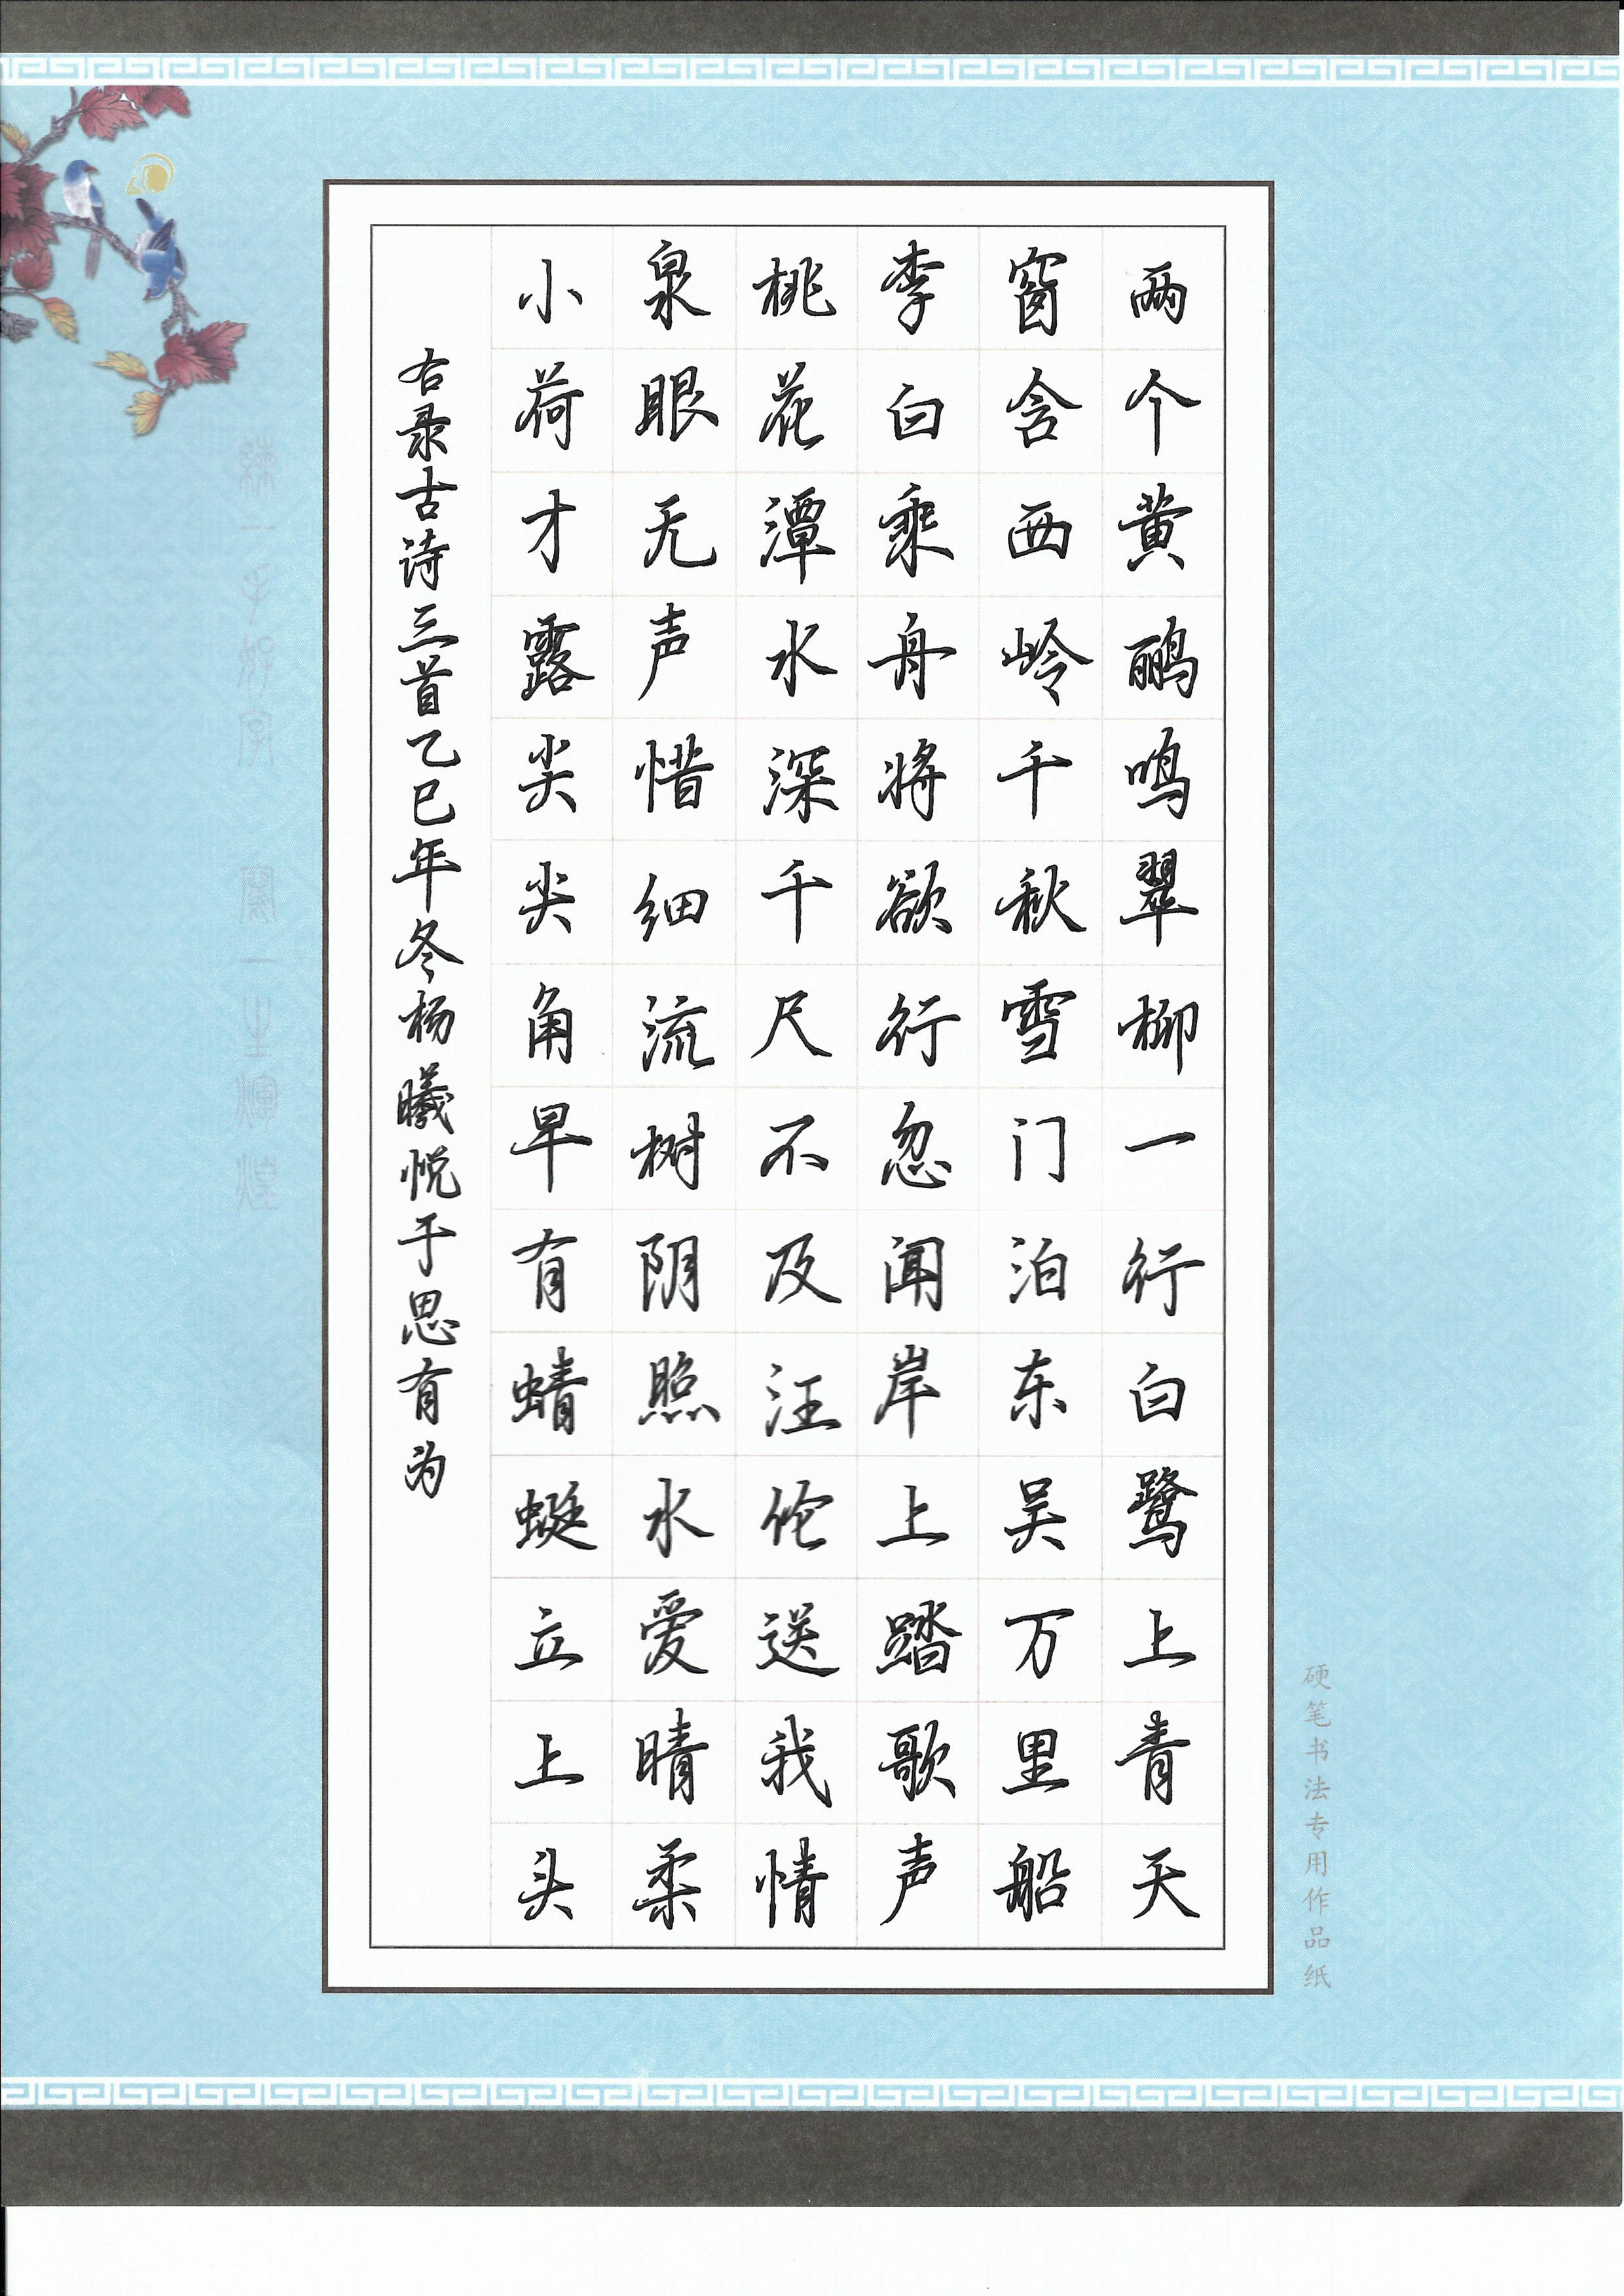 硬笔书法专用作品纸
两个黄鹂鸣翠柳一行白鹭上青天
窗含西岭千秋雪门泊东吴万里船
李白乘舟将欲行忽闻岸上踏歌声
桃花潭水深千尺不及汪伦送我情
泉眼无声惜细流树阴照水爱晴柔
小荷才露尖尖角早有蜻蜓立上头
右录古诗三首乙巳年冬杨曦悦于思有为
練一手好字 寫一生煇煌